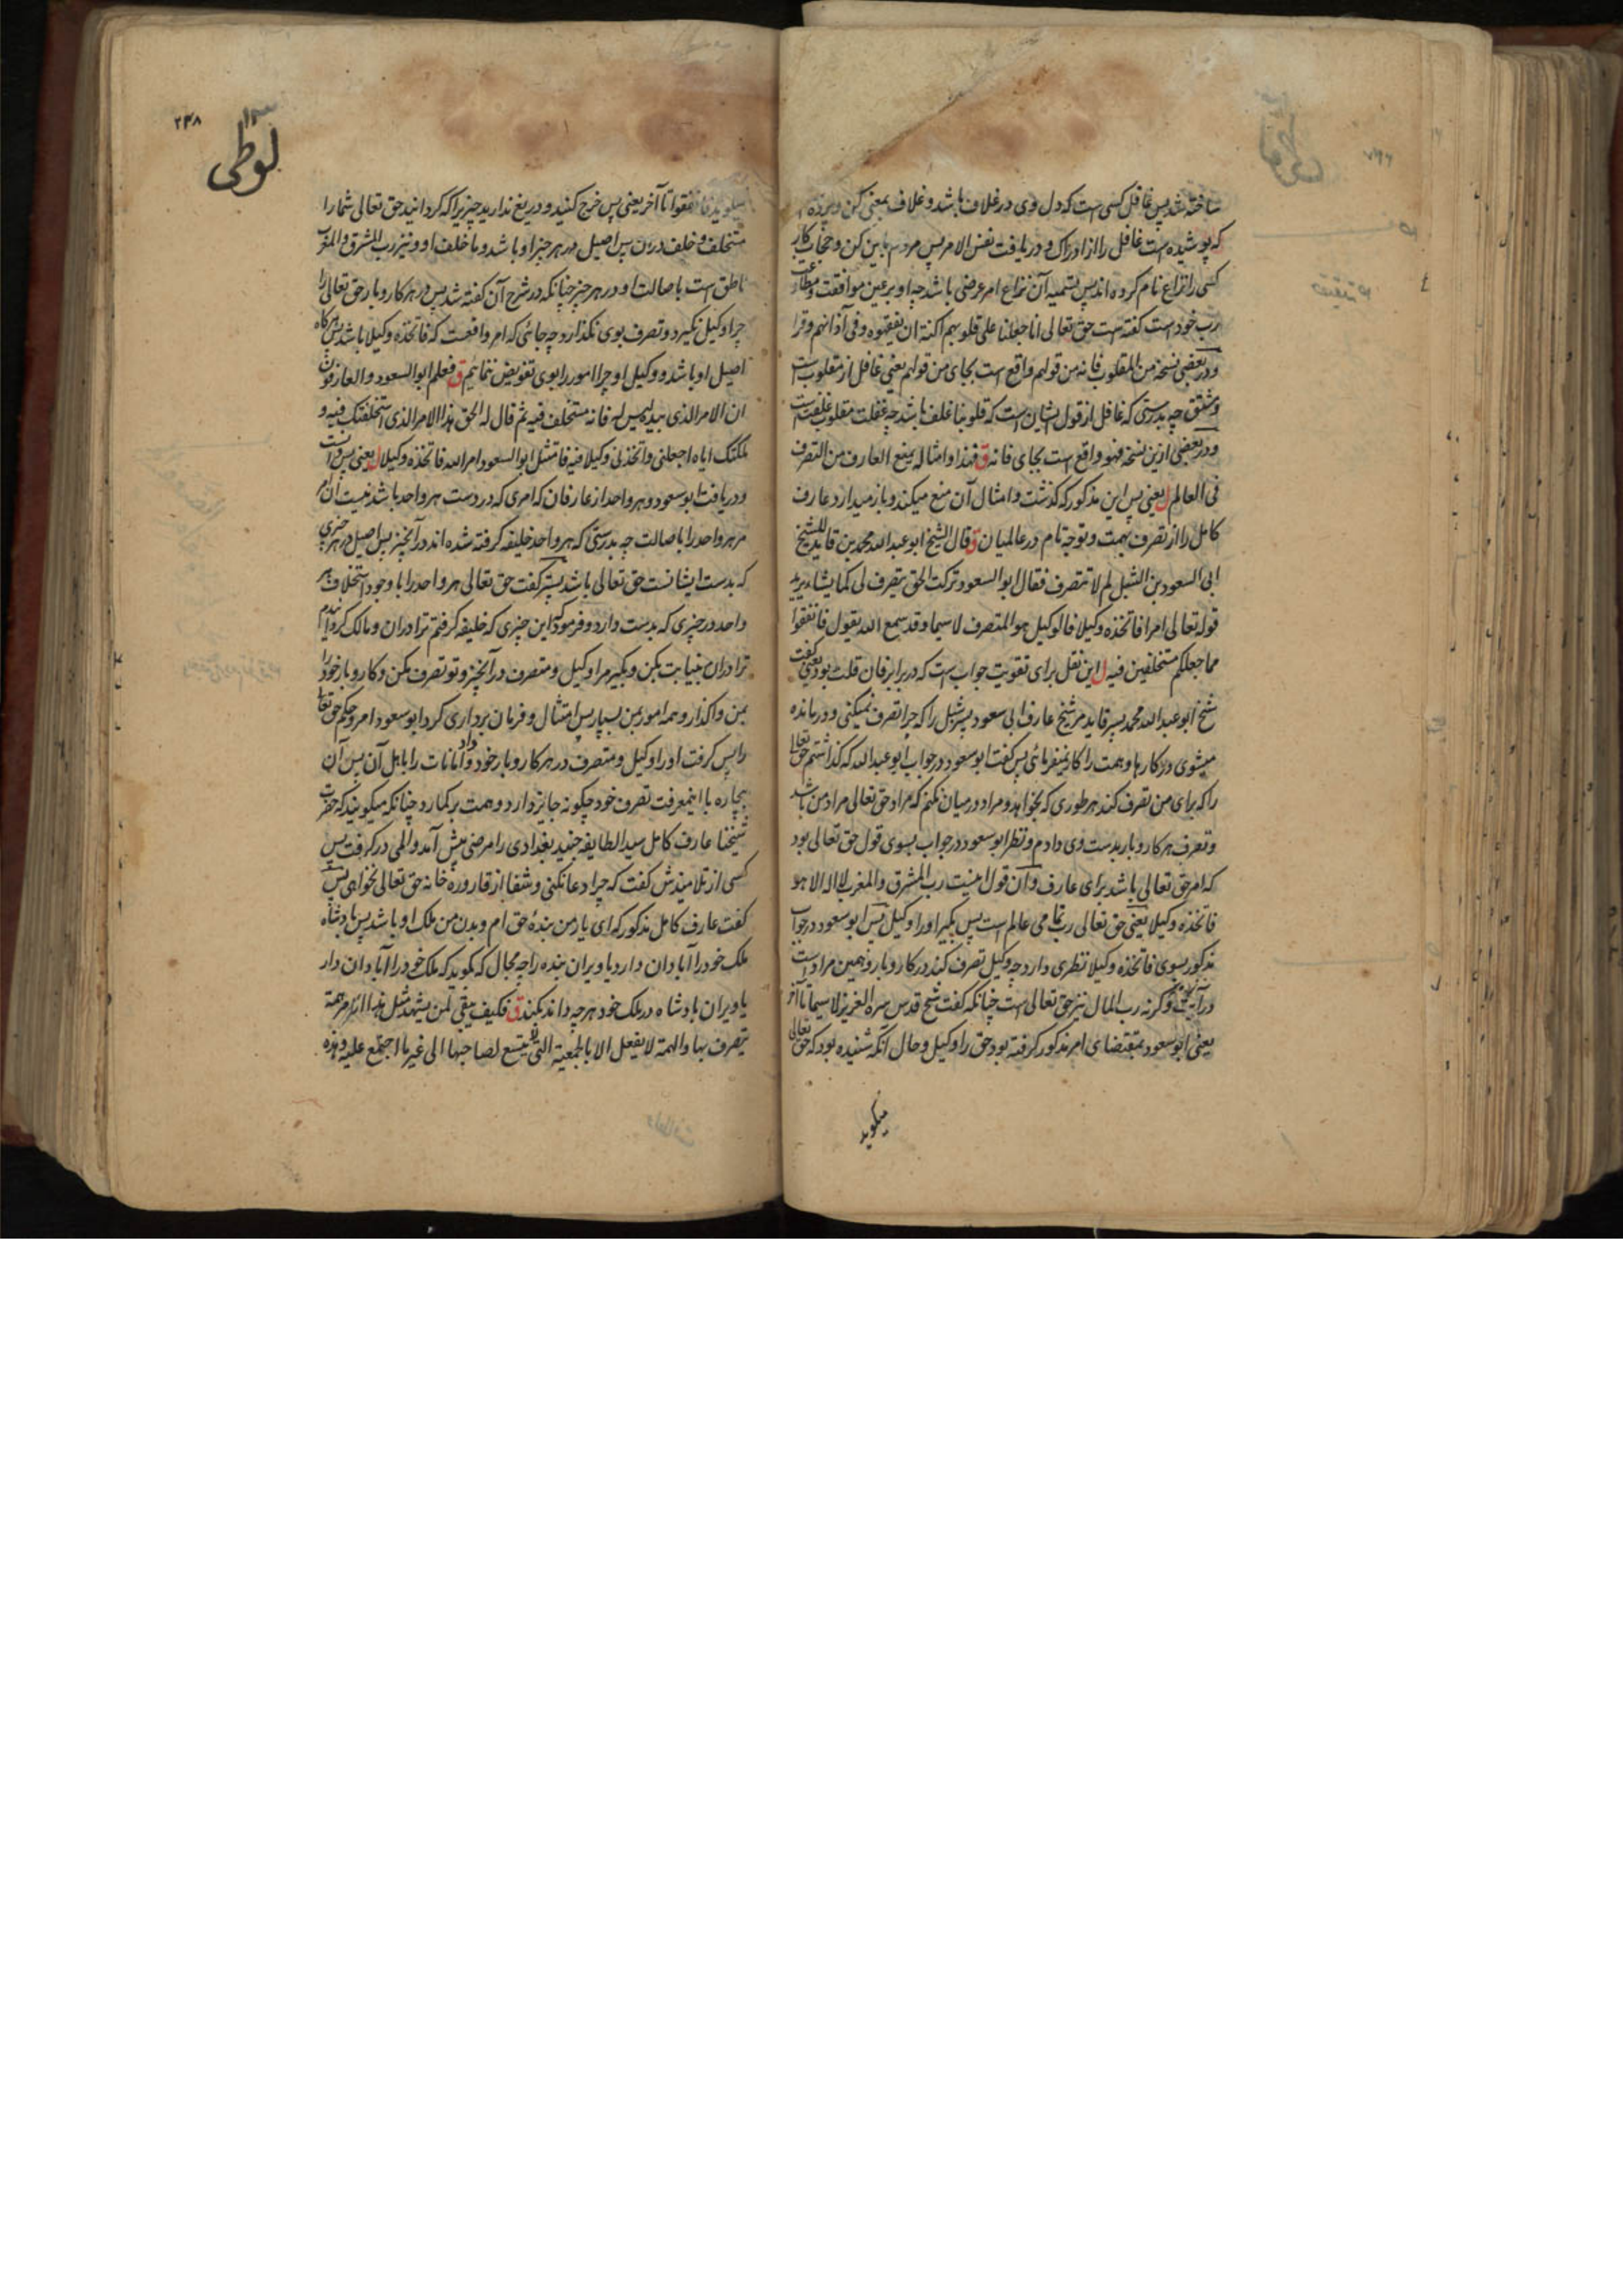 ساخته شد پس غافل کسی است که دل وی در غلاف باشد و غلاف بمعنی کن و پرده
که پوشیده است غافل را از ادراک و دریافت نفس الامر پس مردم باین کن و حجاب کار
کسی را نزاع نام کرده اند پس تسمیه آن نزاع امر عرضی باشد چه او بر عین موافقت و مطاوعت
رب خود است گفته است حق تعالی انا جعلنا علی قلوبهم اکنة ان یفقهوه و فی آذانهم وقرا
و در بعضی نسخه من المقلوب فانه من قولهم واقع است بجای من قولهم یعنی غافل از مقلوب است
و مشتق چه بدرستی که غافل از قول ایشان است که قلوبنا غلف باشد چه غفلت مقلوب غلفت است
و در بعضی ازین نسخه فهو واقع است بجای فانه ق فهذا و امثاله یمنع العارف من التصرف
فی العالم ل یعنی پس این مذکور که گذشت و امثال آن منع میکند و باز میدارد عارف
کامل را از تصرف بهمت و توجه تام در عالمیان ق قال الشیخ ابو عبد الله محمد بن قاید للشیخ
ابی السعود بن الشبل لم لا تتصرف فقال ابو السعود ترکت الحق یتصرف لی کما یشاء یرید
قوله تعالی امرا فاتخذه وکیلا فالوکیل هو المتصرف لا سیما و قد سمع الله یقول فانفقوا
مما جعلکم مستخلفین فیه ل این نقل برای تقویت جواب است که در برابر فان قلت بود یعنی گفت
شیخ ابو عبد الله محمد پسر قاید مر شیخ عارف ابی سعود پسر شبل را که چرا تصرف نمیکنی و درمانده
میشوی در کارها و همت را کار نمیفرمائی پس گفت ابو سعود در جواب ابو عبد الله که گذاشتم حق تعالی
را که برای من تصرف کند هر طوری که بخواهد و مراد در میان نکنم که مراد حق تعالی مراد من باشد
و تصرف هر کار و بار بدست وی دادم و نظر ابو سعود در جواب بسوی قول حق تعالی بود
که امر حق تعالی باشد برای عارف و آن قول اینست رب المشرق و المغرب لا اله الا هو
فاتخذه وکیلا یعنی حق تعالی رب تمامی عالم است پس بگیر او را وکیل پس ابو سعود در جواب
مذکور بسوی فاتخذه وکیلا نظری دارد چه وکیل تصرف کند در کار و بار و همین مراد است
در آیت وگرنه رب المال نیز حق تعالی است چنانکه گفت شیخ قدس سره العزیز لا سیما تا آخر
یعنی ابو سعود بمقتضای امر مذکور گرفته بود حق را وکیل و حال آنکه شنیده بود که حق تعالی
میگوید
۲۴۸
لوطی
میگوید فانفقوا تا آخر یعنی پس خرج کنید و دریغ ندارید چیزیرا که گردانید حق تعالی شما را
متخلف و خلف دران پس اصیل در هر چیز او باشد و ما خلف او و نیز رب المشرق و المغرب
ناطق است باصالت او در هر چیز چنانکه در شرح آن گفته شد پس در هر کار و بار حق تعالی را
چرا وکیل نگیرد و تصرف بوی نگذارد چه جائی که امر واقعست که فاتخذه وکیلا باشد پس هرگاه
اصیل او باشد و وکیل او چرا امور را بوی تفویض ننمائیم ق فعلم ابو السعود و العارفون
ان الامر الذی بیده لیس له فانه مستخلف فیه ثم قال له الحق هذا الامر الذی استخلفتک فیه و
ملکتک ایاه اجعلنی و اتخذنی وکیلا فیه فامتثل ابو السعود امر الله فاتخذه وکیلا ل یعنی پس دانست
و دریافت ابو سعود و هر واحد از عارفان که امری که در دست هر واحد باشد نیست آن امر
مر هر واحد را باصالت چه بدرستی که هر واحد خلیفه گرفته شده اند در آنچیز پس اصیل در هر چیزی
که بدست ایشانست حق تعالی باشد پستر گفت حق تعالی هر واحد را با وجود استخلاف هر
واحد در چیزی که بدست دارد و فرمود که این چیزی که خلیفه گرفتم ترا دران و مالک گردانیدم
ترا دران بنیابت بکن و بگیر مرا وکیل و متصرف در آنچیز و تو تصرف مکن و کار و بار خود را
بمن واگذار و همه امور بمن بسپار پس امتثال و فرمان برداری کرد ابو سعود امر و حکم حق تعالی
را پس گرفت او را وکیل و متصرف در هر کار و بار خود و داد امانات را باهل آن پس آن
بیچاره با اینمعرفت تصرف خود چگونه جایز دارد و همت برگمارد چنانکه میگویند که حضرت
شیخنا عارف کامل سید الطایفه جنید بغدادی را مرضی پیش آمد و المی در گرفت پس
کسی از تلامیذش گفت که چرا دعا نکنی و شفا از قاروره خانه حق تعالی نخواهی پس
گفت عارف کامل مذکور که ای یار من بندهٔ حق ام و بدن من ملک او باشد پس بادشاه
ملک خود را آبادان دارد یا ویران بنده را چه مجال که بگوید که ملک خود را آبادان دار
یا ویران بادشاه در ملک خود هر چه داند بکند ق فکیف یبقی لمن یشهد مثل هذا الامر همة
یتصرف بها و الهمة لا یفعل الا بالجمعیة التی لا یتسع لصاحبها الی غیر ما اجتمع علیه و هذه